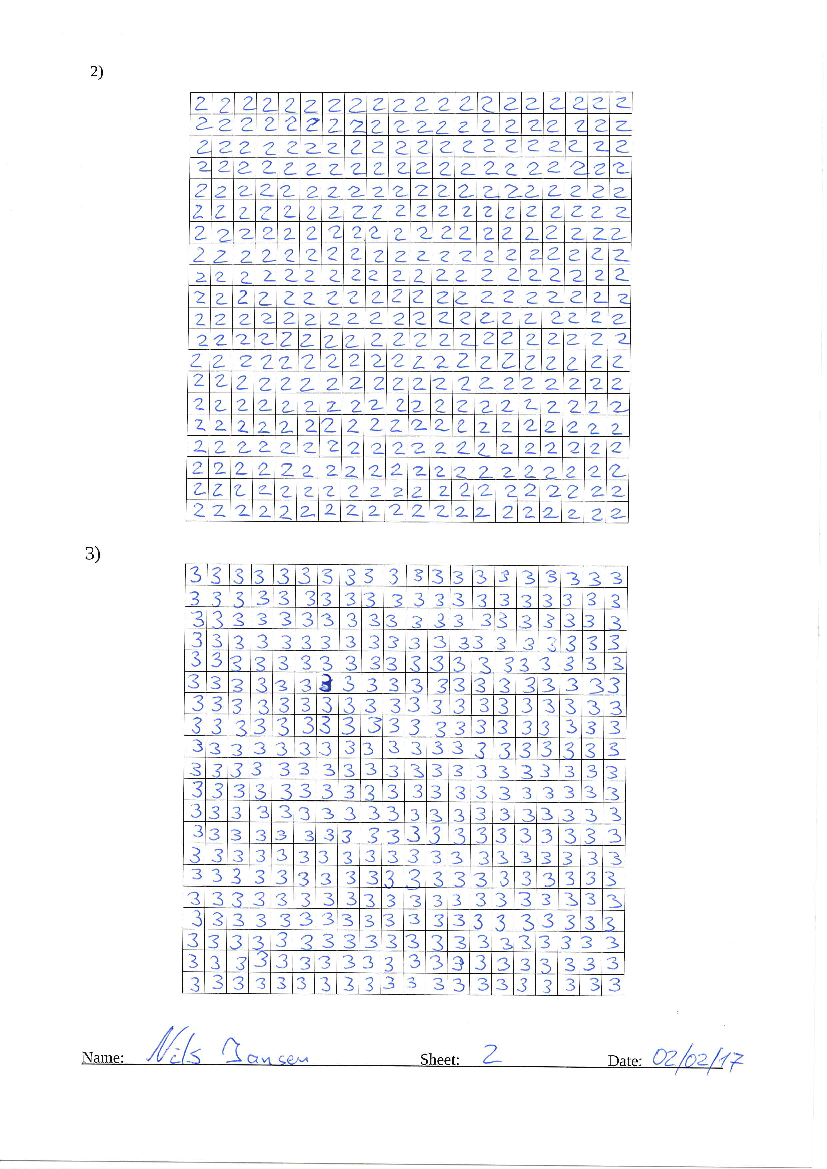 2)
2 2 2 2 2 2 2 2 2 2 2 2 2 2 2 2 2 2 2 2
2 2 2 2 2 2 2 2 2 2 2 2 2 2 2 2 2 2 2 2
2 2 2 2 2 2 2 2 2 2 2 2 2 2 2 2 2 2 2 2
2 2 2 2 2 2 2 2 2 2 2 2 2 2 2 2 2 2 2 2
2 2 2 2 2 2 2 2 2 2 2 2 2 2 2 2 2 2 2 2
2 2 2 2 2 2 2 2 2 2 2 2 2 2 2 2 2 2 2 2
2 2 2 2 2 2 2 2 2 2 2 2 2 2 2 2 2 2 2 2
2 2 2 2 2 2 2 2 2 2 2 2 2 2 2 2 2 2 2 2
2 2 2 2 2 2 2 2 2 2 2 2 2 2 2 2 2 2 2 2
2 2 2 2 2 2 2 2 2 2 2 2 2 2 2 2 2 2 2 2
2 2 2 2 2 2 2 2 2 2 2 2 2 2 2 2 2 2 2 2
2 2 2 2 2 2 2 2 2 2 2 2 2 2 2 2 2 2 2 2
2 2 2 2 2 2 2 2 2 2 2 2 2 2 2 2 2 2 2 2
2 2 2 2 2 2 2 2 2 2 2 2 2 2 2 2 2 2 2 2
2 2 2 2 2 2 2 2 2 2 2 2 2 2 2 2 2 2 2 2
2 2 2 2 2 2 2 2 2 2 2 2 2 2 2 2 2 2 2 2
2 2 2 2 2 2 2 2 2 2 2 2 2 2 2 2 2 2 2 2
2 2 2 2 2 2 2 2 2 2 2 2 2 2 2 2 2 2 2 2
2 2 2 2 2 2 2 2 2 2 2 2 2 2 2 2 2 2 2 2
2 2 2 2 2 2 2 2 2 2 2 2 2 2 2 2 2 2 2 2
3)
3 3 3 3 3 3 3 3 3 3 3 3 3 3 3 3 3 3 3 3
3 3 3 3 3 3 3 3 3 3 3 3 3 3 3 3 3 3 3 3
3 3 3 3 3 3 3 3 3 3 3 3 3 3 3 3 3 3 3 3
3 3 3 3 3 3 3 3 3 3 3 3 3 3 3 3 3 3 3 3
3 3 3 3 3 3 3 3 3 3 3 3 3 3 3 3 3 3 3 3
3 3 3 3 3 3 3 3 3 3 3 3 3 3 3 3 3 3 3 3
3 3 3 3 3 3 3 3 3 3 3 3 3 3 3 3 3 3 3 3
3 3 3 3 3 3 3 3 3 3 3 3 3 3 3 3 3 3 3 3
3 3 3 3 3 3 3 3 3 3 3 3 3 3 3 3 3 3 3 3
3 3 3 3 3 3 3 3 3 3 3 3 3 3 3 3 3 3 3 3
3 3 3 3 3 3 3 3 3 3 3 3 3 3 3 3 3 3 3 3
3 3 3 3 3 3 3 3 3 3 3 3 3 3 3 3 3 3 3 3
3 3 3 3 3 3 3 3 3 3 3 3 3 3 3 3 3 3 3 3
3 3 3 3 3 3 3 3 3 3 3 3 3 3 3 3 3 3 3 3
3 3 3 3 3 3 3 3 3 3 3 3 3 3 3 3 3 3 3 3
3 3 3 3 3 3 3 3 3 3 3 3 3 3 3 3 3 3 3 3
3 3 3 3 3 3 3 3 3 3 3 3 3 3 3 3 3 3 3 3
3 3 3 3 3 3 3 3 3 3 3 3 3 3 3 3 3 3 3 3
3 3 3 3 3 3 3 3 3 3 3 3 3 3 3 3 3 3 3 3
3 3 3 3 3 3 3 3 3 3 3 3 3 3 3 3 3 3 3 3
Name: Nils Jansen Sheet: 2 Date: 02/02/17